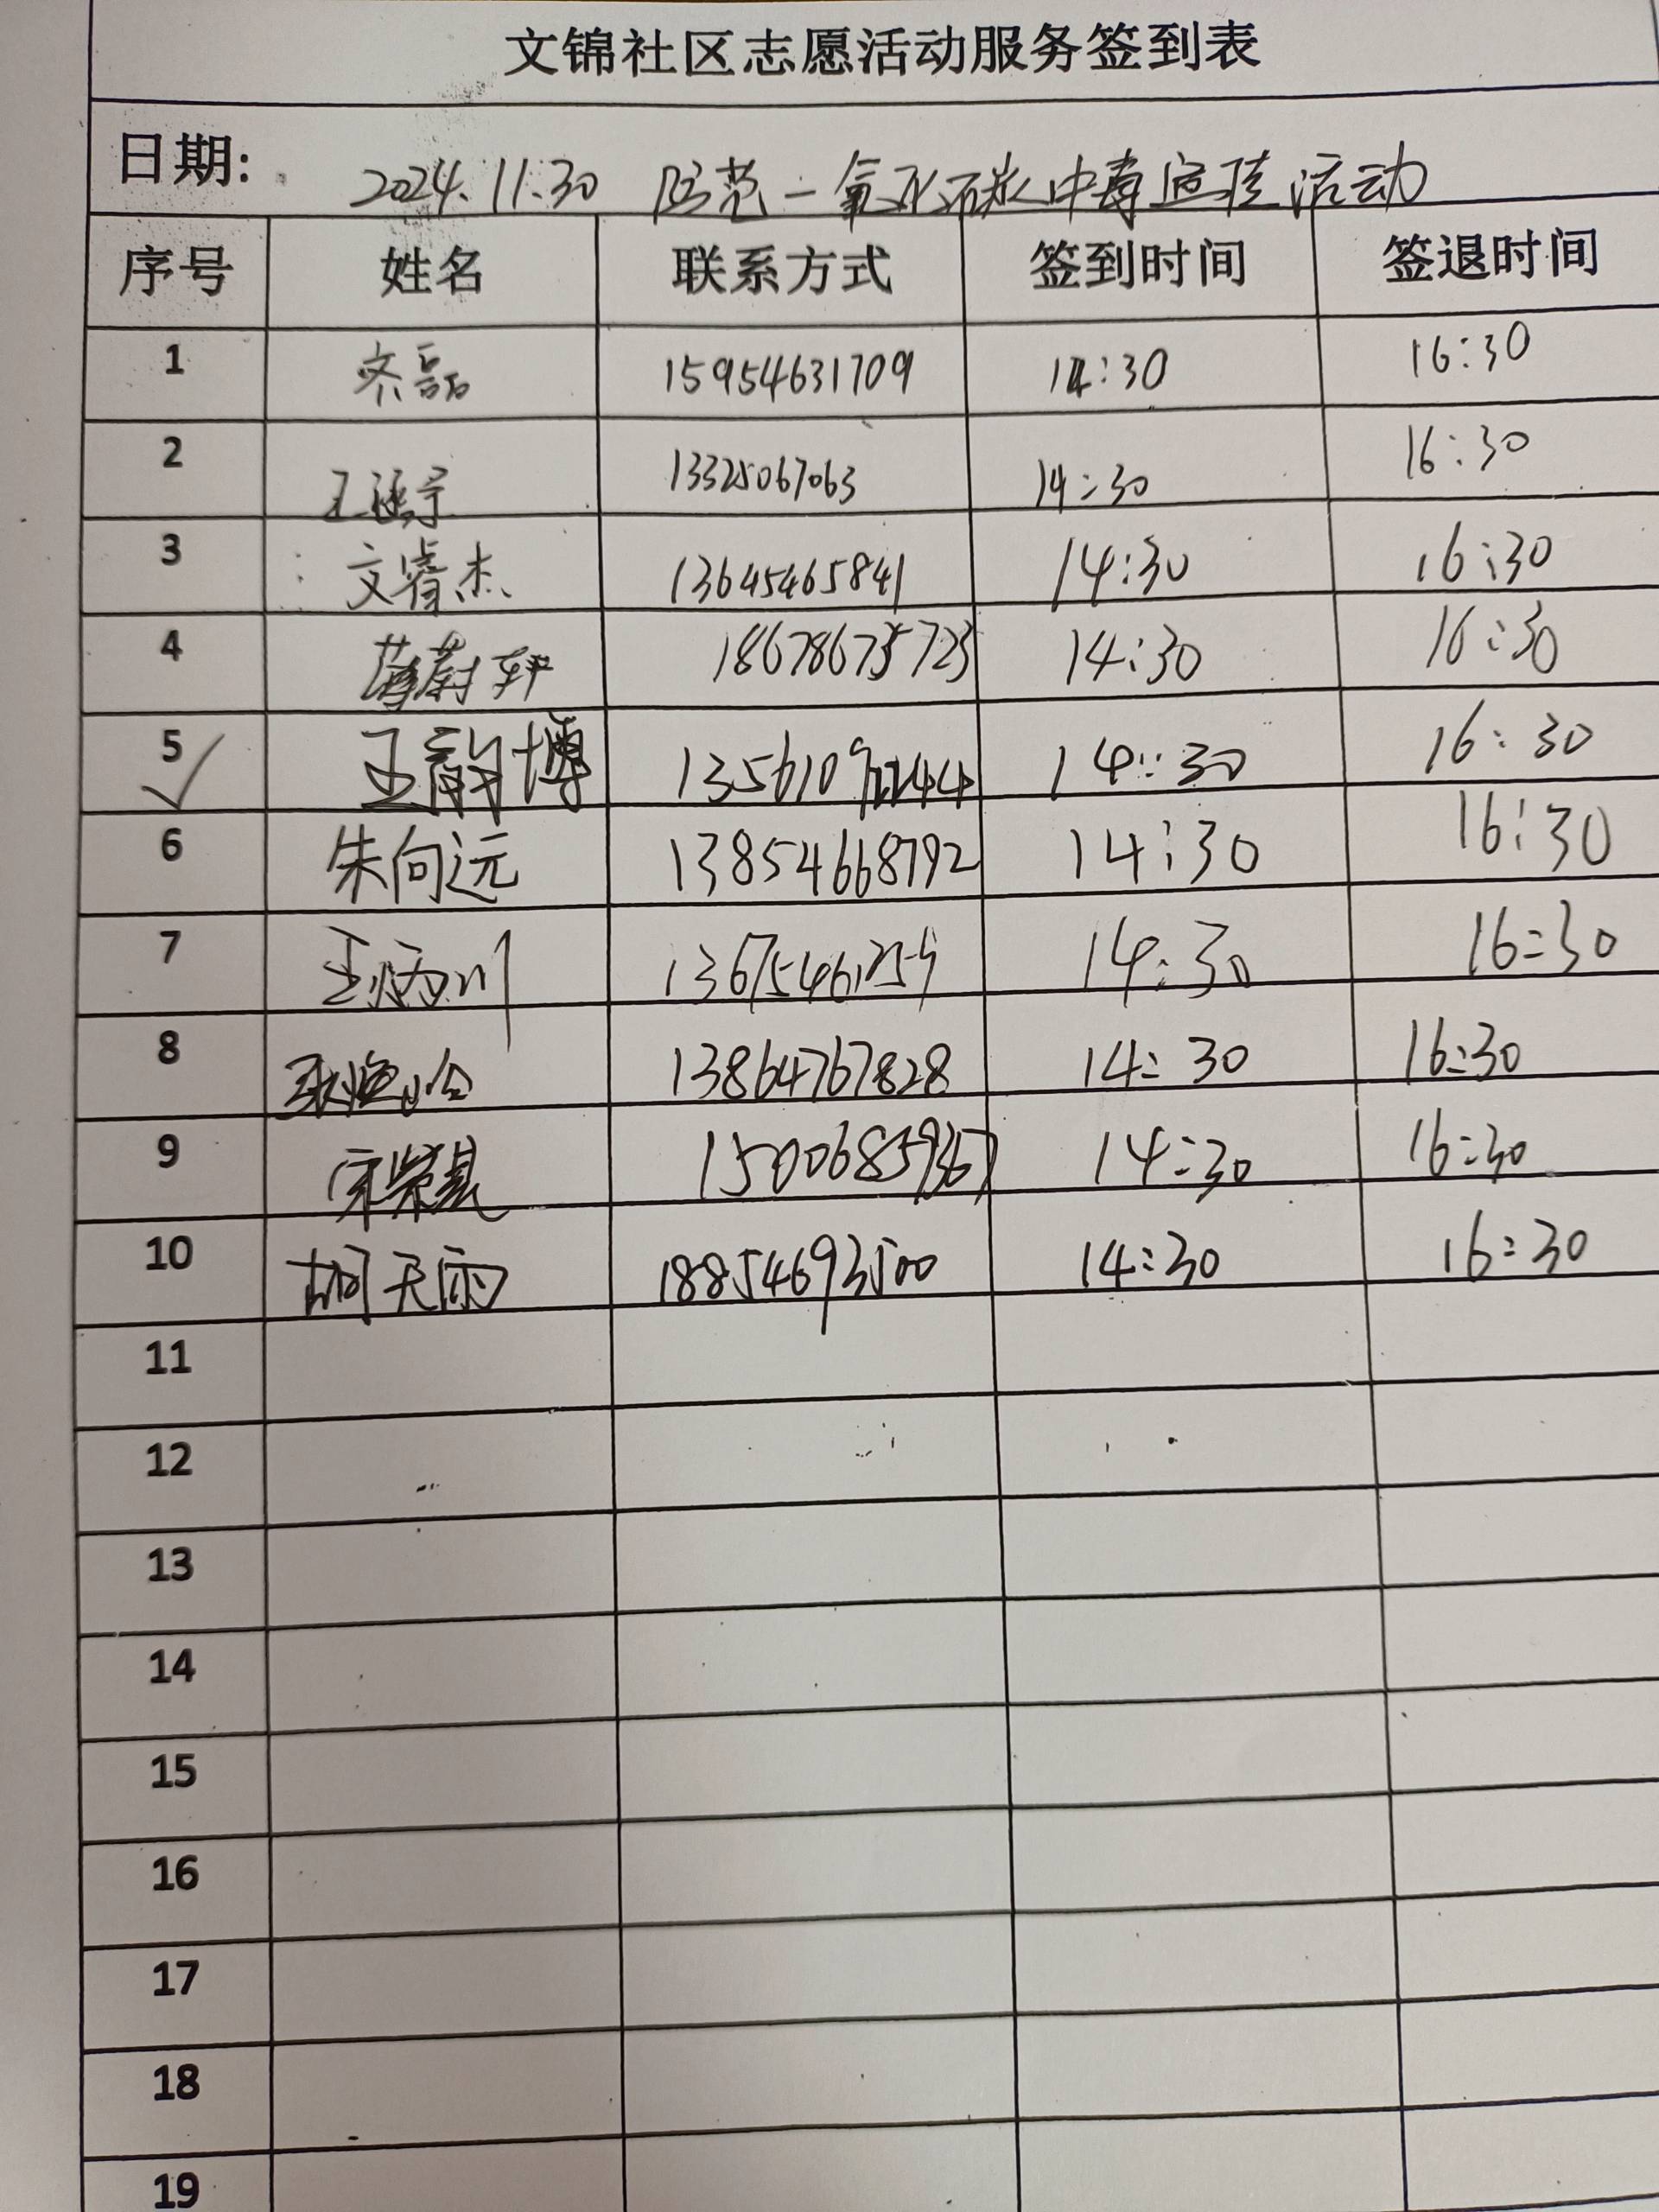 文锦社区志愿活动服务签到表
日期: 2024.11.30 防范一氧化碳中毒宣传活动
序号 姓名 联系方式 签到时间 签退时间
1 齐磊 15954631709 14:30 16:30
2 王涵宇 13325067063 14:30 16:30
3 文睿杰 13645465841 14:30 16:30
4 薄蔚轩 14:30 16:30
5 王韵博 14:30 16:30
6 朱向远 13854668792 14:30 16:30
7 14:30 16:30
8 13864767828 14:30 16:30
9 14:30 16:30
10 胡天雨 18854693500 14:30 16:30
11
12
13
14
15
16
17
18
19